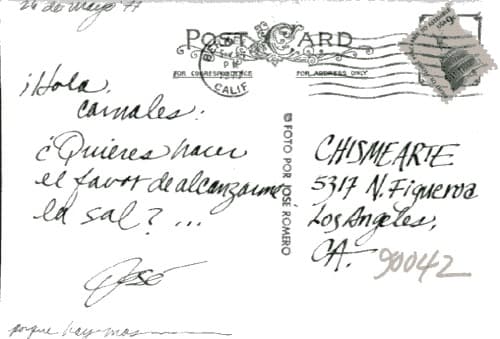 26 de mayo 77
POST CARD
FOR CORRESPONDENCE
FOR ADDRESS ONLY
PM
CALIF
¡Hola,
carnales:
¿Quieres hacer
el favor de alcanzarme
la sal? ...
José
porque hay mas
© FOTO POR JOSÉ ROMERO
CHISMEARTE
5317 N. Figueroa
Los Angeles,
CA. 90042